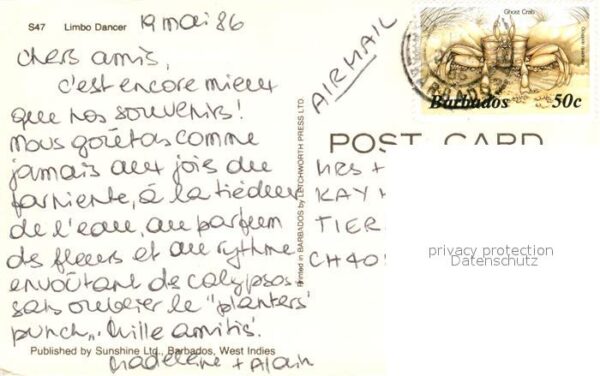 S47 Limbo Dancer 19 mai 86
Chers amis,
c'est encore mieux
que nos souvenirs!
Nous goûtons comme
jamais aux joies du
farniente, à la tiédeur
de l'eau, au parfum
des fleurs et au rythme
envoûtant des calypsos
sans oublier le "planters
punch". Mille amitiés.
Madeleine + Alain
Published by Sunshine Ltd., Barbados, West Indies
Printed in BARBADOS by LETCHWORTH PRESS LTD.
AIRMAIL
Ghost Crab
Barbados 50c
POST CARD
MRS +
KAY
TIER
CH 40
privacy protection
Datenschutz